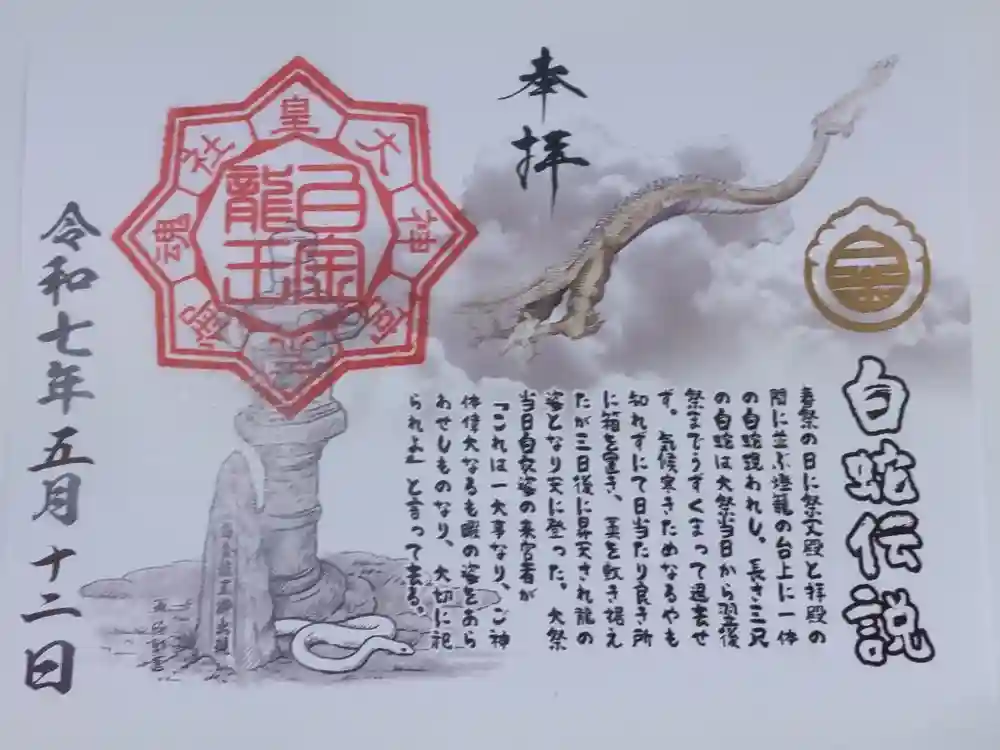 奉拝
白蛇伝説
春祭の日に祭文殿と拝殿の
間に並ぶ燈籠の台上に一体
の白蛇現われし。長さ三尺
の白蛇は大祭当日から翌後
祭までうずくまって退去せ
ず。気候寒きためなるやも
知れずにて日当たり良き所
に箱を置き、藁を敷き据え
たが三日後に昇天され龍の
姿となり天に登った。大祭
当日白衣姿の来客者が
「これは一大事なり、ご神
体偉大なるも暇の姿をあら
わせしものなり、大切に祀
られよ」と言って去る。
大神宮御魂社皇
白宝龍王
令和七年五月十二日